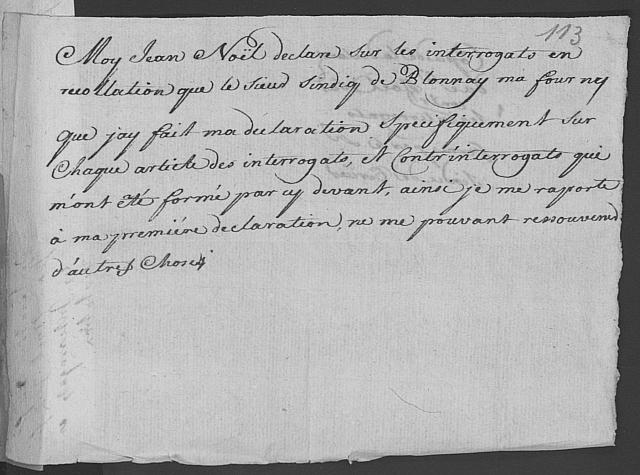 113
Moy Jean Noël declare sur les interrogats en
recollation que le sieud sindiq de Blonnay ma fourney
que jay fait ma déclaration specifiquement sur
Chaque article des interrogats, et Contr'interrogats qui
m'ont été formé par cy devant, ainsi je me raporte
à ma premiére declaration, ne me pouvant ressouvenir
d'autres Choses